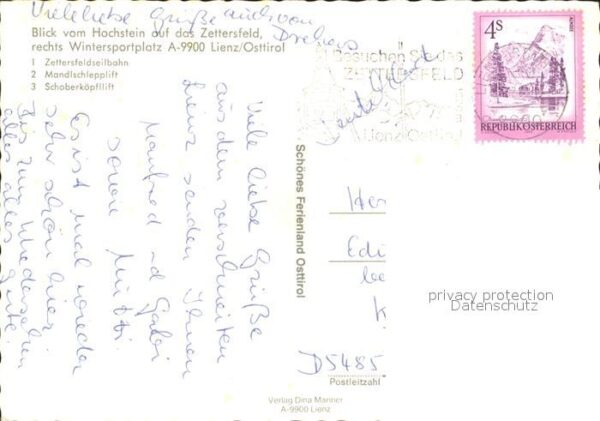 Viele liebe Grüße auch von
Drehers
Blick vom Hochstein auf das Zettersfeld,
rechts Wintersportplatz A-9900 Lienz/Osttirol
1 Zettersfeldseilbahn
2 Mandlschlepplift
3 Schoberköpfllift
Besuchen Sie das
ZETTERSFELD
Lienz Osttirol
4S
REPUBLIK ÖSTERREICH
Viele liebe Grüße
aus dem verschneiten
Lienz senden Ihnen
Manfred und Gabi
sowie Mutti.
Es ist mal wieder
sehr schön hier
Bis zum Wiedersehen
alles Gute.
Schönes Ferienland Osttirol
Her
Edi
K
D5485
Postleitzahl
privacy protection
Datenschutz
Verlag Dina Mariner
A-9900 Lienz